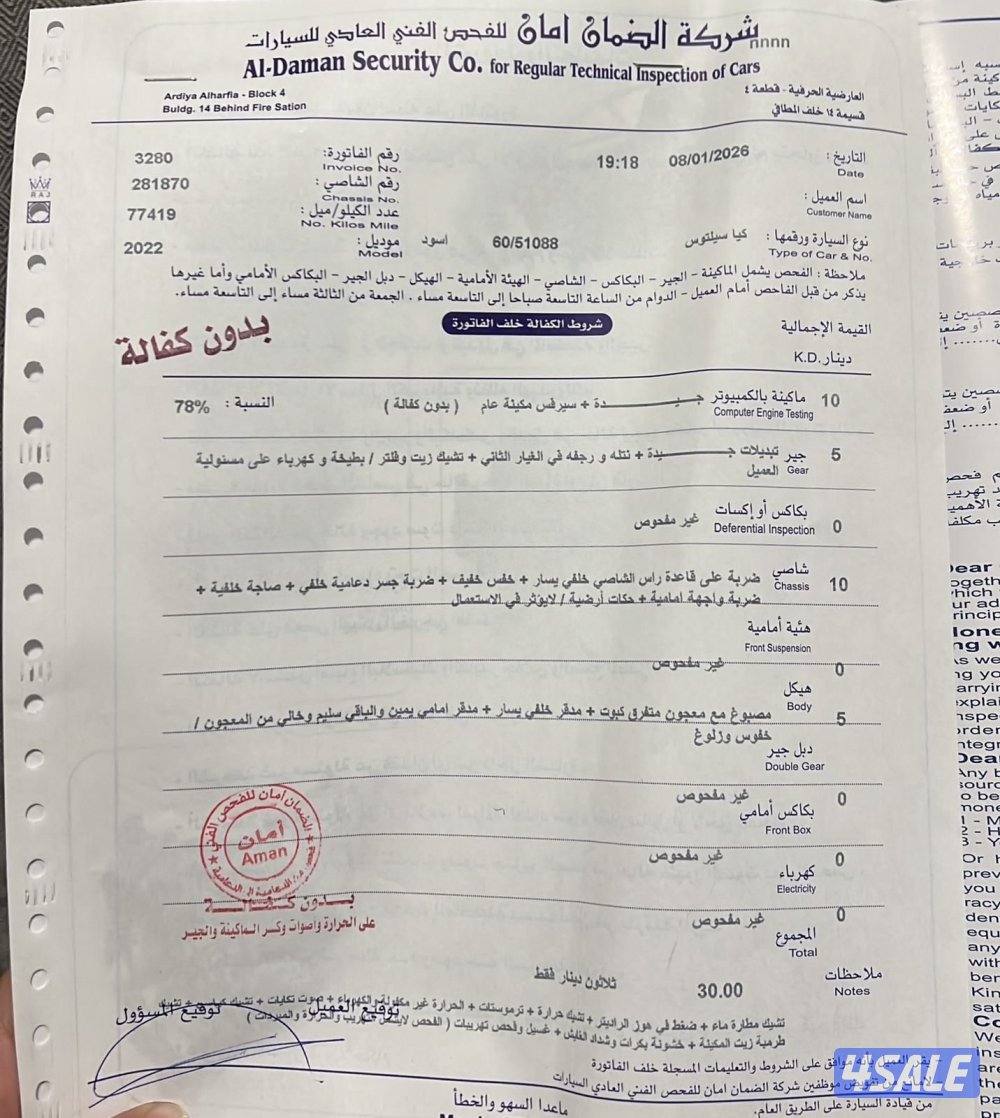 شركة الضمان امان للفحص الفني العادي للسيارات
nnnn
Al-Daman Security Co. for Regular Technical Inspection of Cars
Ardiya Alharfia - Block 4
Buldg. 14 Behind Fire Sation
العارضية الحرفية - قطعة ٤
قسيمة ١٤ خلف المطافي
التاريخ :
Date
08/01/2026
19:18
رقم الفاتورة:
Invoice No.
3280
اسم العميل :
Customer Name
رقم الشاصي :
Chassis No.
281870
عدد الكيلو/ميل :
No. Kilos Mile
77419
نوع السيارة ورقمها :
Type of Car & No.
كيا سيلتوس
60/51088
اسود
موديل :
Model
2022
ملاحظة : الفحص يشمل الماكينة - الجير - البكاكس - الشاصي - الهيئة الأمامية - الهيكل - دبل الجير - البكاكس الأمامي وأما غيرها
يذكر من قبل الفاحص أمام العميل - الدوام من الساعة التاسعة صباحا إلى التاسعة مساء . الجمعة من الثالثة مساء إلى التاسعة مساء.
شروط الكفالة خلف الفاتورة
بدون كفالة
القيمة الإجمالية
دينار K.D.
10
ماكينة بالكمبيوتر
Computer Engine Testing
جيـــدة + سيرفس مكينة عام ( بدون كفالة )
النسبة : 78%
5
جير
Gear
تبديلات جيـــدة + نتله و رجفه في الغيار الثاني + تشيك زيت وفلتر / بطيخة و كهرباء على مسئولية
العميل
0
بكاكس أو إكسات
Deferential Inspection
غير مفحوص
10
شاصي
Chassis
ضربة على قاعدة راس الشاصي خلفي يسار + خفس خفيف + ضربة جسر دعامية خلفي + صاجة خلفية +
ضربة واجهة امامية + حكات أرضية / لايؤثر في الاستعمال
هئية أمامية
Front Suspension
0
غير مفحوص
هيكل
Body
5
مصبوغ مع معجون متفرق كبوت + مدقر خلفي يسار + مدقر امامي يمين والباقي سليم وخالي من المعجون /
خفوس وزلوغ
دبل جير
Double Gear
0
غير مفحوص
بكاكس أمامي
Front Box
0
غير مفحوص
كهرباء
Electricity
0
غير مفحوص
المجموع
Total
ثلاثون دينار فقط
30.00
الضمان امان للفحص الفني
أمان
Aman
بـدون كـفـالـــة
على الحرارة وأصوات وكسر الماكينة والجير
ملاحظات
Notes
تشيك مطارة ماء + ضغط في هوز الراديتر + تشيك حرارة + ترموستات + الحرارة غير مكفولة والكهرباء + صوت تكايات + تشيك
طرمبة زيت المكينة + خشونة بكرات وشداد القايش + غسيل وفحص تهريبات
توقيع العميل
توقيع المسؤول
- يقر العميل بأنه موافق على الشروط والتعليمات المسجلة خلف الفاتورة
من قيادة السيارة على الطريق العام.
ماعدا السهو والخطأ
4SALE